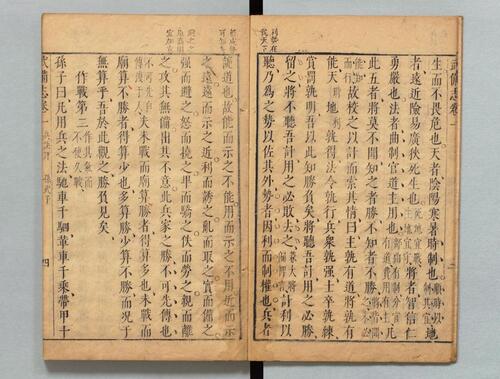 武備志卷一
生而不畏危也天者陰陽寒暑時制也順時以制其宜地
者遠近險易廣狹死生也死地宜戰生地宜守將者智信仁
勇嚴也法者曲制官道主用也凡
此五者將莫不聞知之者勝不知者不勝
故校之以計而索其情曰主孰有道將孰有
能天時地利孰得法令孰行兵衆孰強士卒孰練
賞罰孰明吾以此知勝負矣將聽吾計用之必勝
留之將不聽吾計用之必敗去之計利以
聽乃爲之勢以佐其外勢者因利而制權也兵者
詭道也故能而示之不能用而示之不用近而示
之遠遠而示之近利而誘之亂而取之實而備之
強而避之怒而撓之卑而驕之佚而勞之親而離
之攻其無備出其不意此兵家之勝不可先傳也
夫未戰而廟算勝者得算多也未戰而
廟算不勝者得算少也多算勝少算不勝而況于
無算乎吾於此觀之勝負見矣
作戰第二作其氣而不使久戰
孫子曰凡用兵之法馳車千駟革車千乘帶甲十
武備志卷一 兵訣評 孫武子 四